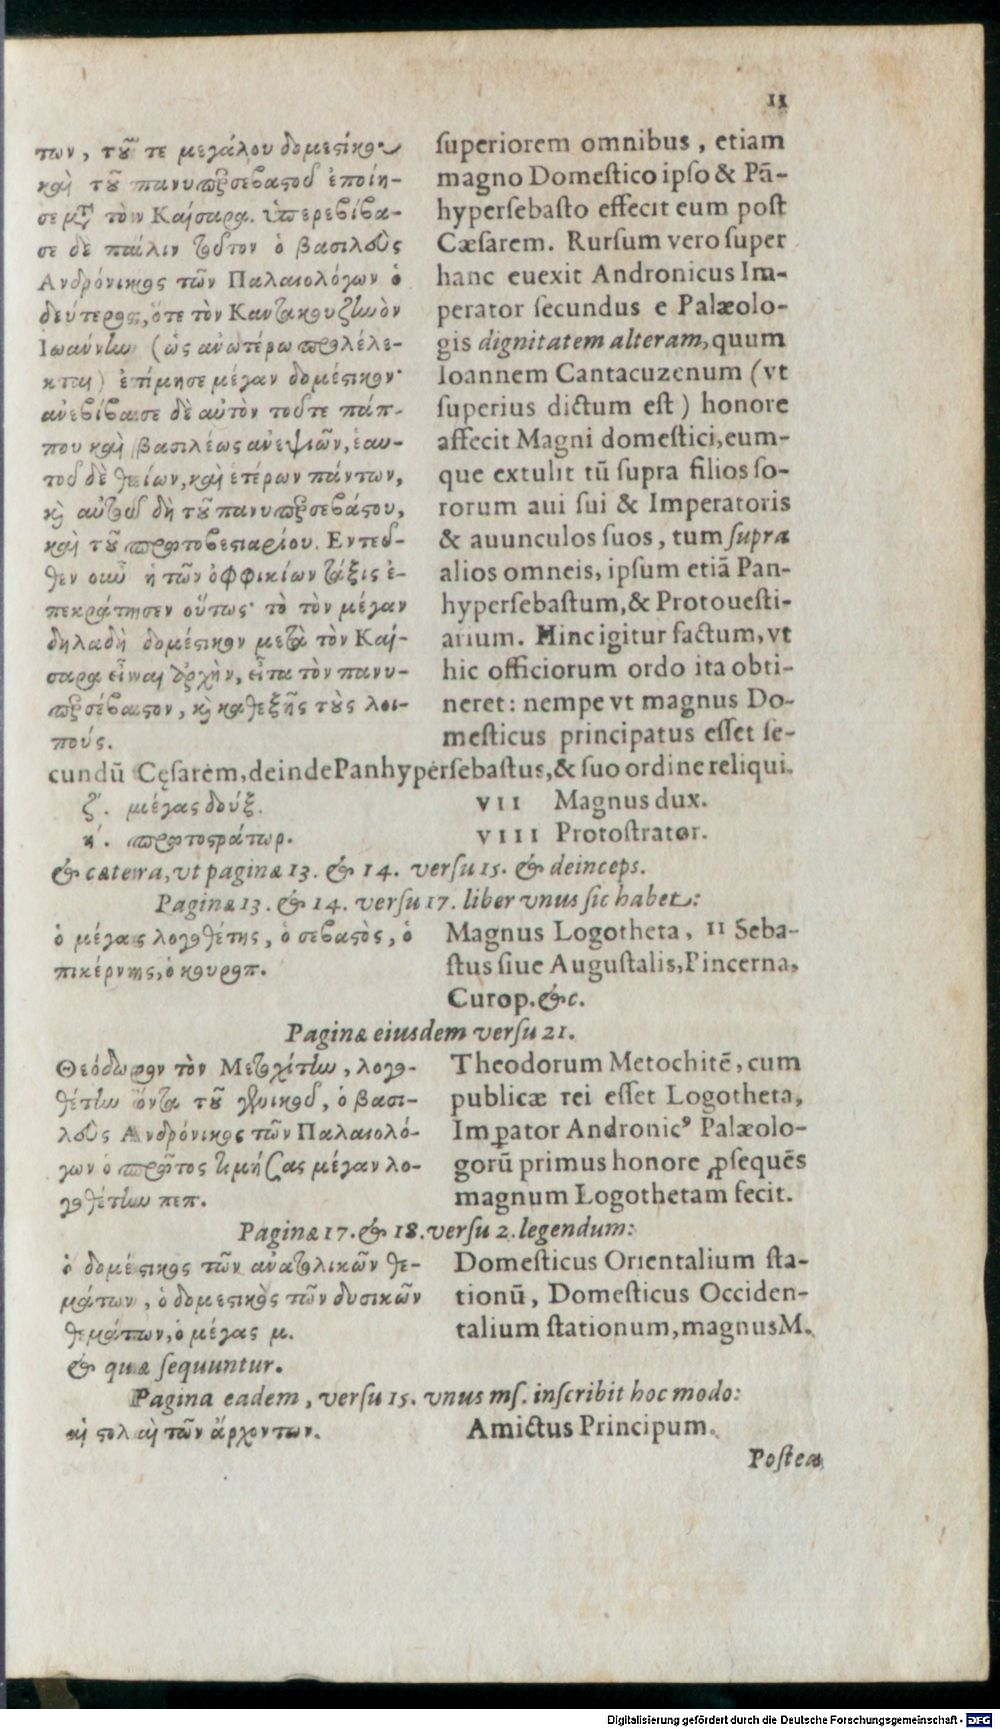 11
των, τοῦ τε μεγάλου δομεστίκου
καὶ τοῦ πανυπερσεβάστου ἐποίη-
σε μετὰ τὸν Καίσαρα. ὑπερεβίβα-
σε δὲ πάλιν τοῦτον ὁ βασιλεὺς
Ανδρόνικος τῶν Παλαιολόγων ὁ
δεύτερος, ὅτε τὸν Καντακουζηνὸν
Ιωάννην (ὡς ἀνωτέρω προλέλε-
κται) ἐτίμησε μέγαν δομέστικον·
ἀνεβίβασε δὲ αὐτὸν τοῦτε πάπ-
που καὶ βασιλέως ἀνεψιῶν, ἑαυ-
τοῦ δὲ θείων, καὶ ἑτέρων πάντων,
κỳ αὐτοῦ δὴ τοῦ πανυπερσεβάστου,
καὶ τοῦ πρωτοβεστιαρίου. Εντεῦ-
θεν οὖν ἡ τῶν ὀφφικίων τάξις ἐ-
πεκράτησεν οὕτως· τὸ τὸν μέγαν
δηλαδὴ δομέστικον μετὰ τὸν Καί-
σαρα εἶναι ἀρχὴν, εἶτα τὸν πανυ-
περσέβαστον, κỳ καθεξῆς τοὺς λοι-
πούς.
superiorem omnibus, etiam
magno Domestico ipso & Pā-
hypersebasto effecit eum post
Cæsarem. Rursum vero super
hanc euexit Andronicus Im-
perator secundus e Palæolo-
gis dignitatem alteram, quum
Ioannem Cantacuzenum (vt
superius dictum est) honore
affecit Magni domestici, eum-
que extulit tū supra filios so-
rorum aui sui & Imperatoris
& auunculos suos, tum supra
alios omneis, ipsum etiā Pan-
hypersebastum, & Protouesti-
arium. Hinc igitur factum, vt
hic officiorum ordo ita obti-
neret: nempe vt magnus Do-
mesticus principatus esset se-
cundū Cęsarem, deinde Panhypersebastus, & suo ordine reliqui.
ζ. μέγας δούξ. VII Magnus dux.
η. πρωτοστράτωρ. VIII Protostrator.
& cætera, vt paginæ 13. & 14. versu 15. & deinceps.
Paginæ 13. & 14. versu 17. liber vnus sic habet:
ὁ μέγας λογοθέτης, ὁ σεβαστὸς, ὁ
πικέρνης, ὁ κουροπ.
Magnus Logotheta, 11 Seba-
stus siue Augustalis, Pincerna,
Curop. &c.
Paginæ eiusdem versu 21.
Θεόδωρον τὸν Μετοχίτην, λογο-
θέτην ὄντα τοῦ γενικοῦ, ὁ βασι-
λεὺς Ανδρόνικος τῶν Παλαιολό-
γων ὁ πρῶτος τιμήσας μέγαν λο-
γοθέτην πεπ.
Theodorum Metochitē, cum
publicæ rei esset Logotheta,
Imꝑator Andronicꝰ Palæolo-
gorū primus honore ꝓsequēs
magnum Logothetam fecit.
Paginæ 17. & 18. versu 2. legendum:
ὁ δομέστικος τῶν ἀνατολικῶν θε-
μάτων, ὁ δομεστικὸς τῶν δυσικῶν
θεμάτων, ὁ μέγας μ.
Domesticus Orientalium sta-
tionū, Domesticus Occiden-
talium stationum, magnus M.
& quæ sequuntur.
Pagina eadem, versu 15. vnus ms. inscribit hoc modo:
αἱ στολαὶ τῶν ἀρχόντων. Amictus Principum.
Postea
Digitalisierung gefördert durch die Deutsche Forschungsgemeinschaft - DFG